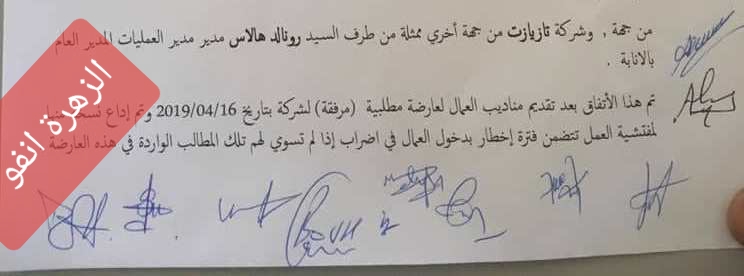 من جهة , وشركة تازيازت من جهة أخري ممثلة من طرف السيد رونالد هالاس مدير مدير العمليات المدير العام
بالانابة .
تم هذا الأتفاق بعد تقديم مناديب العمال لعارضة مطلبية (مرفقة) لشركة بتاريخ 2019/04/16 وتم إداع نسخة منها
لمفتشية العمل تتضمن فترة إخطار بدخول العمال في اضراب إذا لم تسوي لهم تلك المطالب الواردة في هذه العارضة
الزهرة انفو